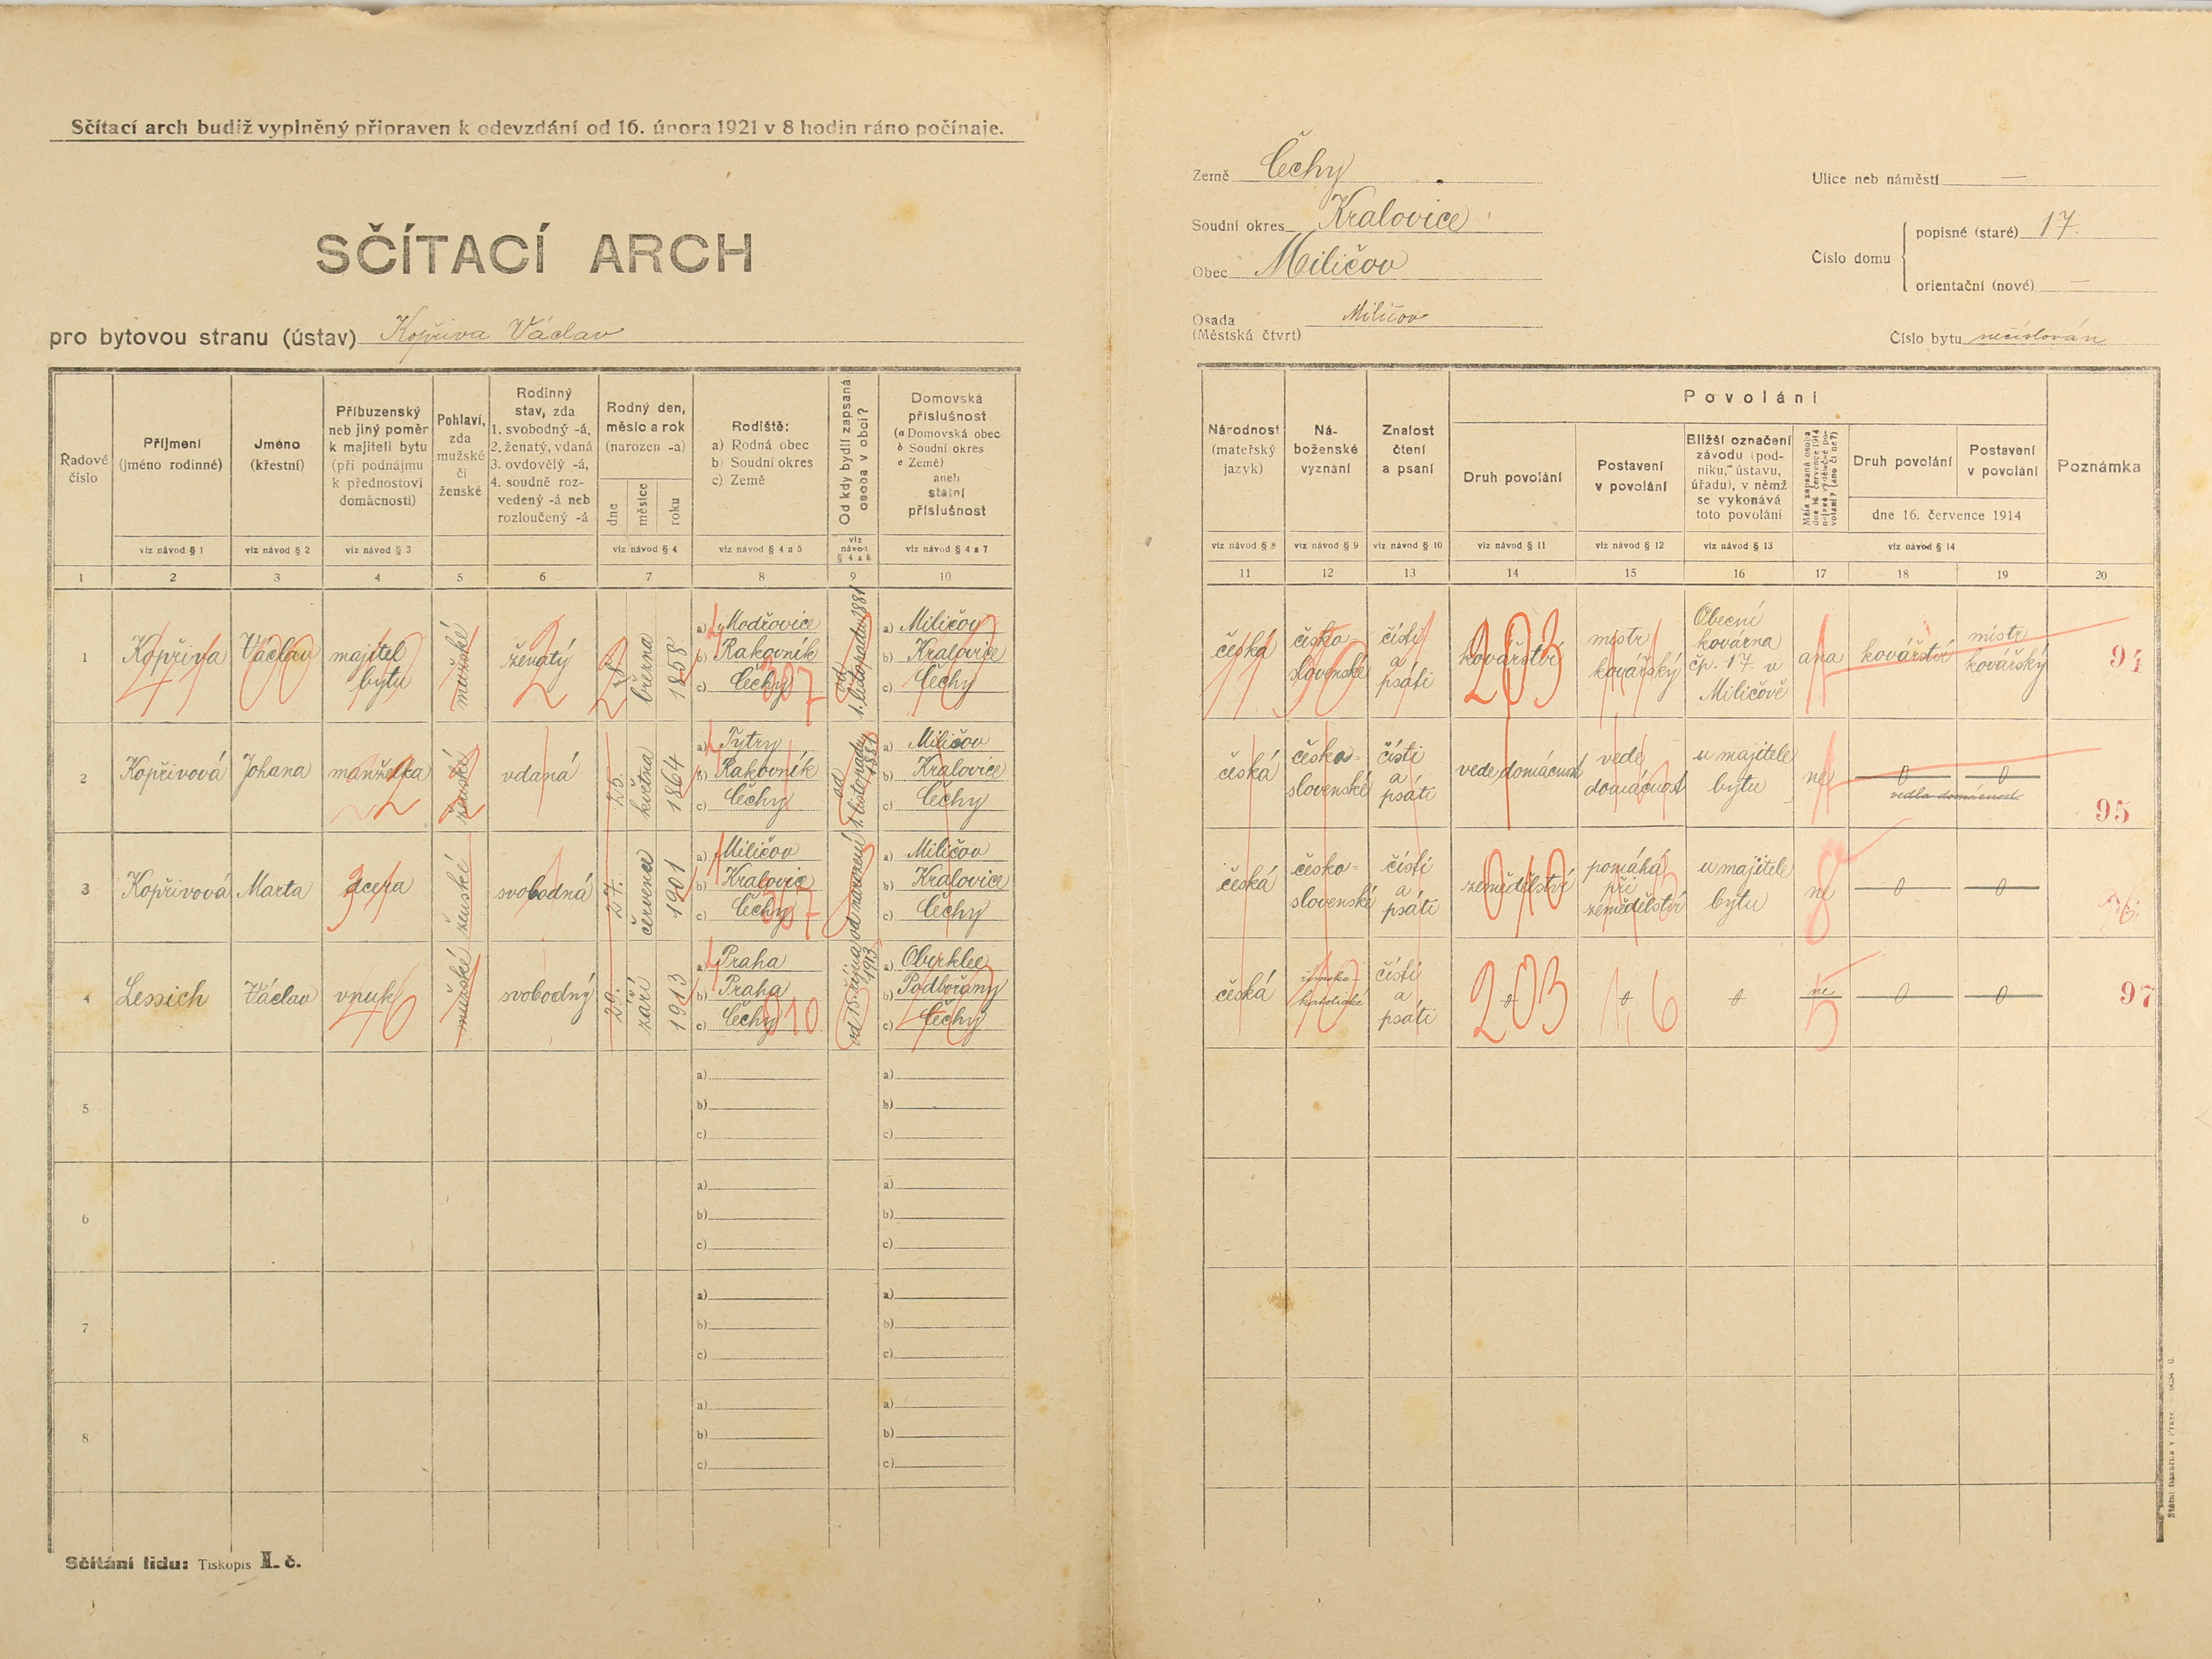 Sčítací arch budiž vyplněný připraven k odevzdání od 16. února 1921 v 8 hodin ráno počínaje.
SČÍTACÍ ARCH
pro bytovou stranu (ústav) Kopřiva Václav
Země Čechy
Soudní okres Kralovice
Obec Miličov
Osada Miličov
(Městská čtvrt)
Ulice neb náměstí —
Číslo domu
popisné (staré) 17.
orientační (nové) —
Číslo bytu nečíslován
Řadové číslo
Příjmení (jméno rodinné)
Jméno (křestní)
Příbuzenský neb jiný poměr k majiteli bytu (při podnájmu k přednostovi domácnosti)
Pohlaví, zda mužské či ženské
Rodinný stav, zda 1. svobodný -á, 2. ženatý, vdaná 3. ovdovělý -á, 4. soudně rozvedený -á neb rozloučený -á
Rodný den, měsíc a rok (narozen -a)
dne
měsíce
roku
Rodiště: a) Rodná obec b) Soudní okres c) Země
Od kdy bydlí zapsaná osoba v obci?
Domovská příslušnost (a Domovská obec b Soudní okres c Země) aneb státní příslušnost
viz návod § 1
viz návod § 2
viz návod § 3
viz návod § 4
viz návod § 4 a 5
viz návod § 4 a 6
viz návod § 4 a 7
1 2 3 4 5 6 7 8 9 10
1 Kopřiva Václav majitel bytu mužské ženatý 28. března 1858
a) Modřovice
b) Rakovník
c) Čechy
od 1. listopadu 1881
a) Miličov
b) Kralovice
c) Čechy
2 Kopřivová Johana manželka ženské vdaná 25. května 1864
a) Tytry
b) Rakovník
c) Čechy
od 1. listopadu 1881
a) Miličov
b) Kralovice
c) Čechy
3 Kopřivová Marta dcera ženské svobodná 27. července 1901
a) Miličov
b) Kralovice
c) Čechy
od narození
a) Miličov
b) Kralovice
c) Čechy
4 Lessich Václav vnuk mužské svobodný 29. září 1913
a) Praha
b) Praha
c) Čechy
od 15. října 1913
a) Oberklee
b) Podbořany
c) Čechy
5 a) b) c) a) b) c)
6 a) b) c) a) b) c)
7 a) b) c) a) b) c)
8 a) b) c) a) b) c)
Sčítání lidu: Tiskopis II. č.
Národnost (mateřský jazyk)
Náboženské vyznání
Znalost čtení a psaní
Povolání
Druh povolání
Postavení v povolání
Bližší označení závodu (podniku, ústavu, úřadu), v němž se vykonává toto povolání
Měla zapsaná osoba dne 16. července 1914 nějaké výdělečné povolání? (ano či ne?)
Druh povolání
Postavení v povolání
dne 16. července 1914
Poznámka
viz návod § 8
viz návod § 9
viz návod § 10
viz návod § 11
viz návod § 12
viz návod § 13
viz návod § 14
11 12 13 14 15 16 17 18 19 20
česká česko-slovenské čísti a psáti kovářství mistr kovářský Obecní kovárna čp. 17. v Miličově ano kovářství mistr kovářský 94
česká česko=slovenské čísti a psáti vede domácnost vede domácnost u majitele bytu ne 0 0
vedla domácnost
95
česká česko=slovenské čísti a psáti zemědělství pomáhá při zemědělství u majitele bytu ne 0 0 96
česká římsko-katolické čísti a psáti 0 0 0 ne 0 0 97